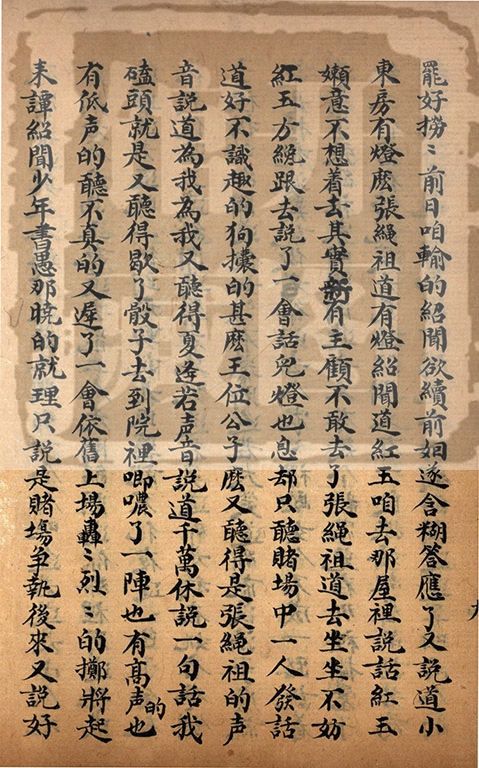 罷好撈〻前日咱輸的紹聞欲續前姻遂含糊答應了又說道小
東房有燈麽張繩祖道有燈紹聞道紅玉咱去那屋裡說話紅玉
嬾意不想着去其實新有主顧不敢去了張繩祖道去坐坐不妨
紅玉方纔跟去說了一會話兒燈也息却只聽賭場中一人發話
道好不識趣的狗攮的甚麽王位公子麽又聽得是張繩祖的声
音說道為我為我又聽得夏逄若声音說道千萬休說一句話我
磕頭就是又聽得歇了骰子去到院裡唧噥了一陣也有高声的也
有低声的聽不真的又遲了一會依舊上場轟〻烈〻的擲將起
来譚紹聞少年書愚那曉的就理只說是賭場争執後來又說好